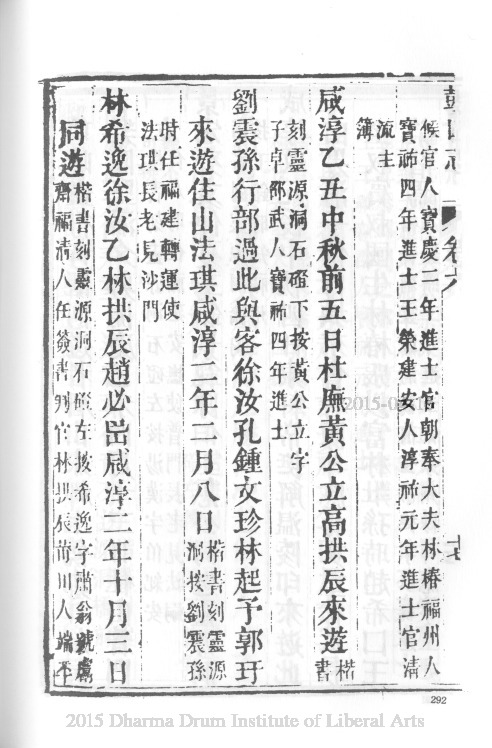 鼓山志 卷六 十七
候官人寶慶二年進士官朝奉大夫林椿福州人
寶祐四年進士王榮建安人淳祐元年進士官清
流主
簿
咸淳乙丑中秋前五日杜廡黃公立高拱辰來遊楷
書
刻靈源洞石磴下按黃公立字
子卓邵武人寶祐四年進士
劉震孫行部過此與客徐汝孔鍾文珍林起予郭玗
來遊住山法琪咸淳二年二月八日楷書刻靈源
洞按劉震孫
時任福建轉運使
法琪長老見沙門
林希逸徐汝乙林拱辰趙必岊咸淳二年十月三日
同遊楷書刻靈源洞石磴左按希逸字肅翁號鬳
齋福清人任簽書判官林拱辰莆田人端平
292
2015 Dharma Drum Institute of Liberal Arts